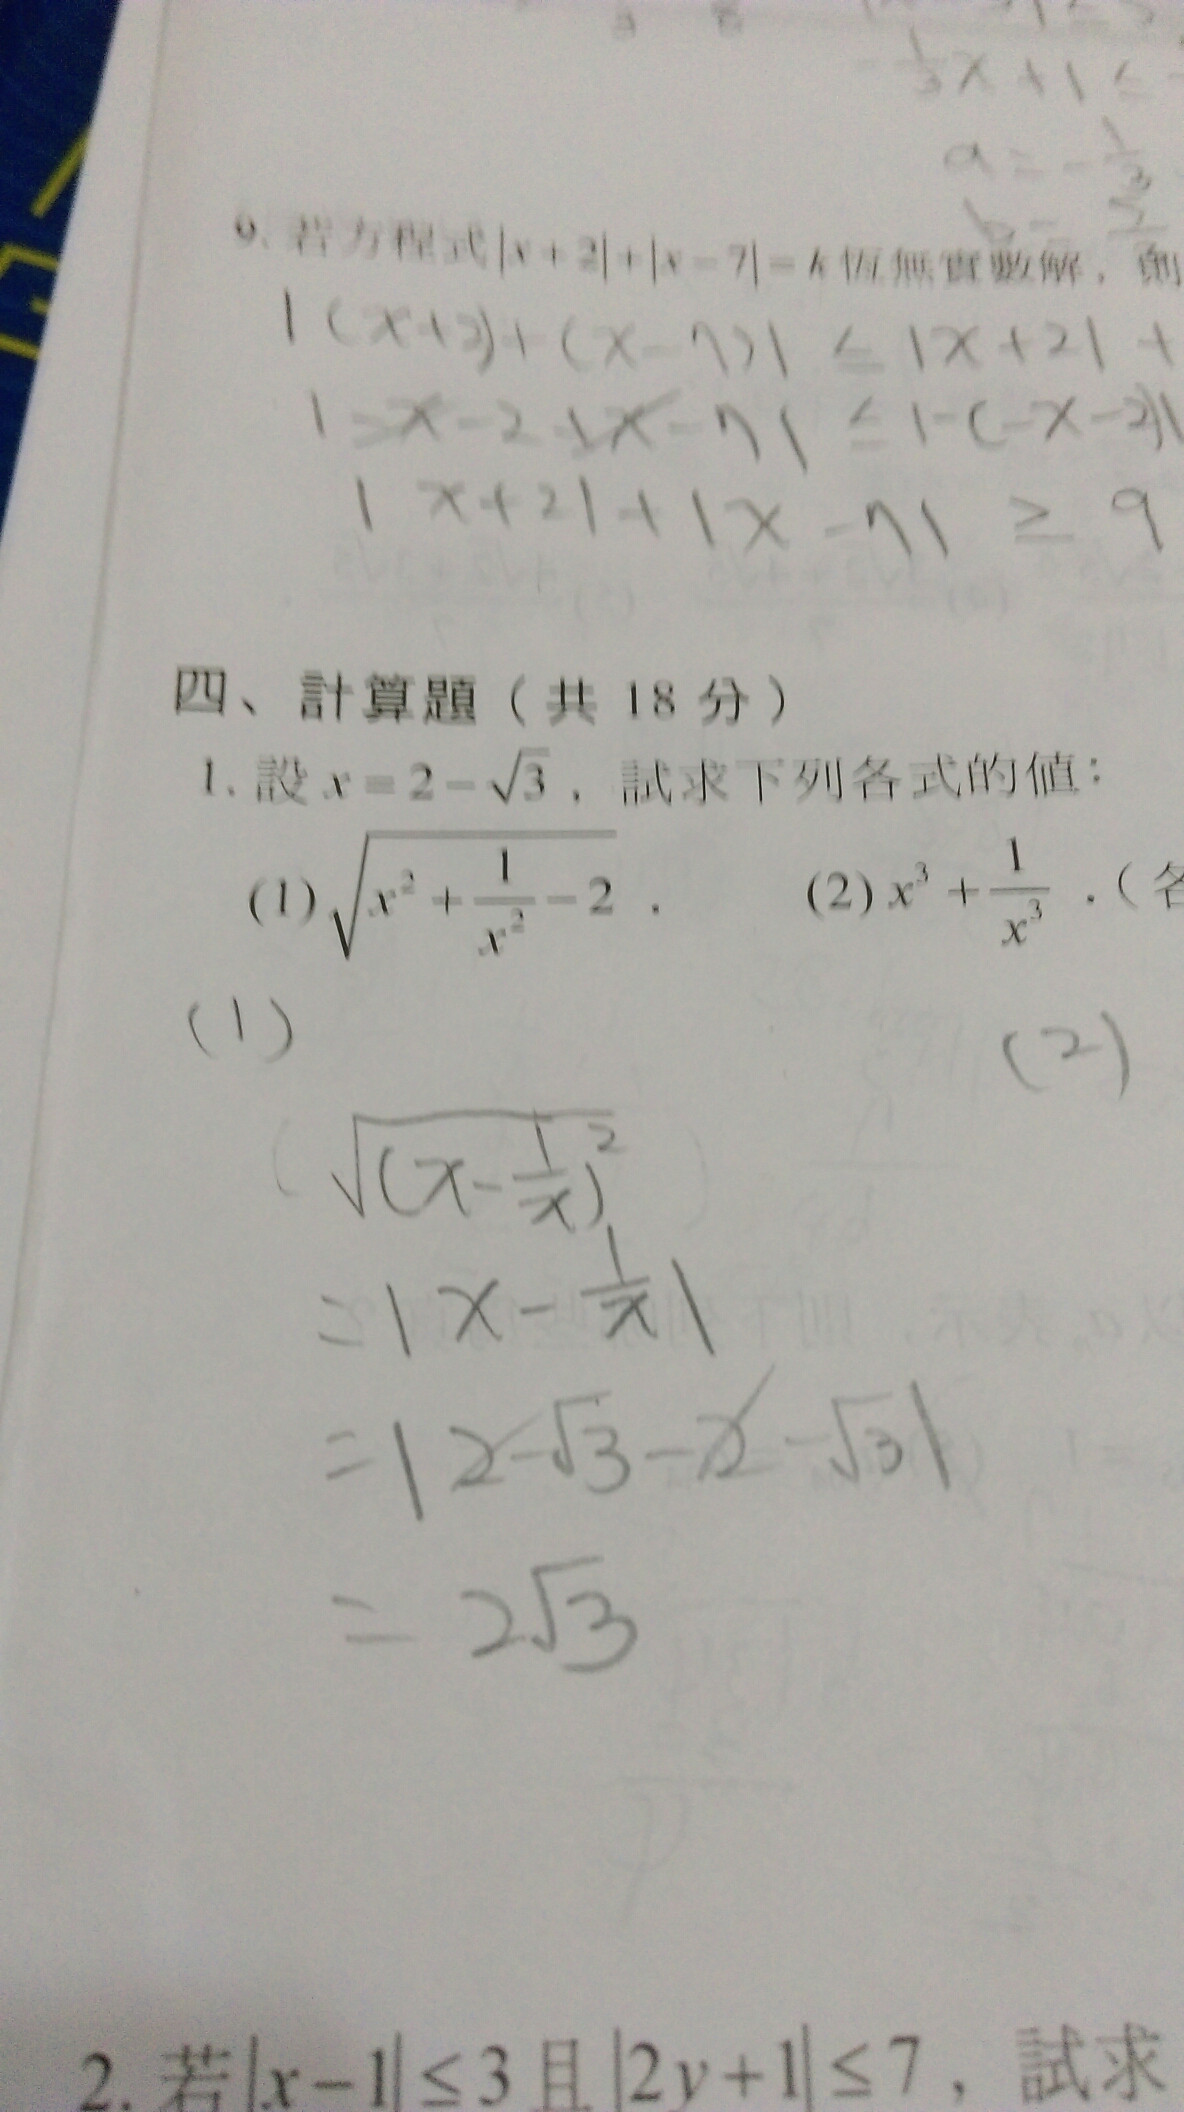 -1/3 x + 1 ≤
a = -1/3
9. 若方程式|x+2|+|x-7|=k恆無實數解，則
|(x+2)+(x-7)| ≤ |x+2| +
|-x-2+x-7| ≤ |-(-x-2)|
|x+2|+|x-7| ≥ 9
四、計算題（共 18 分）
1. 設 x=2-√3，試求下列各式的值：
(1) √(x²+1/x²-2) . (2) x³+1/x³ .（各
(1) (2)
√(x-1/x)²
=|x-1/x|
=|2-√3-2-√3|
=2√3
2. 若|x-1|≤3且|2y+1|≤7，試求